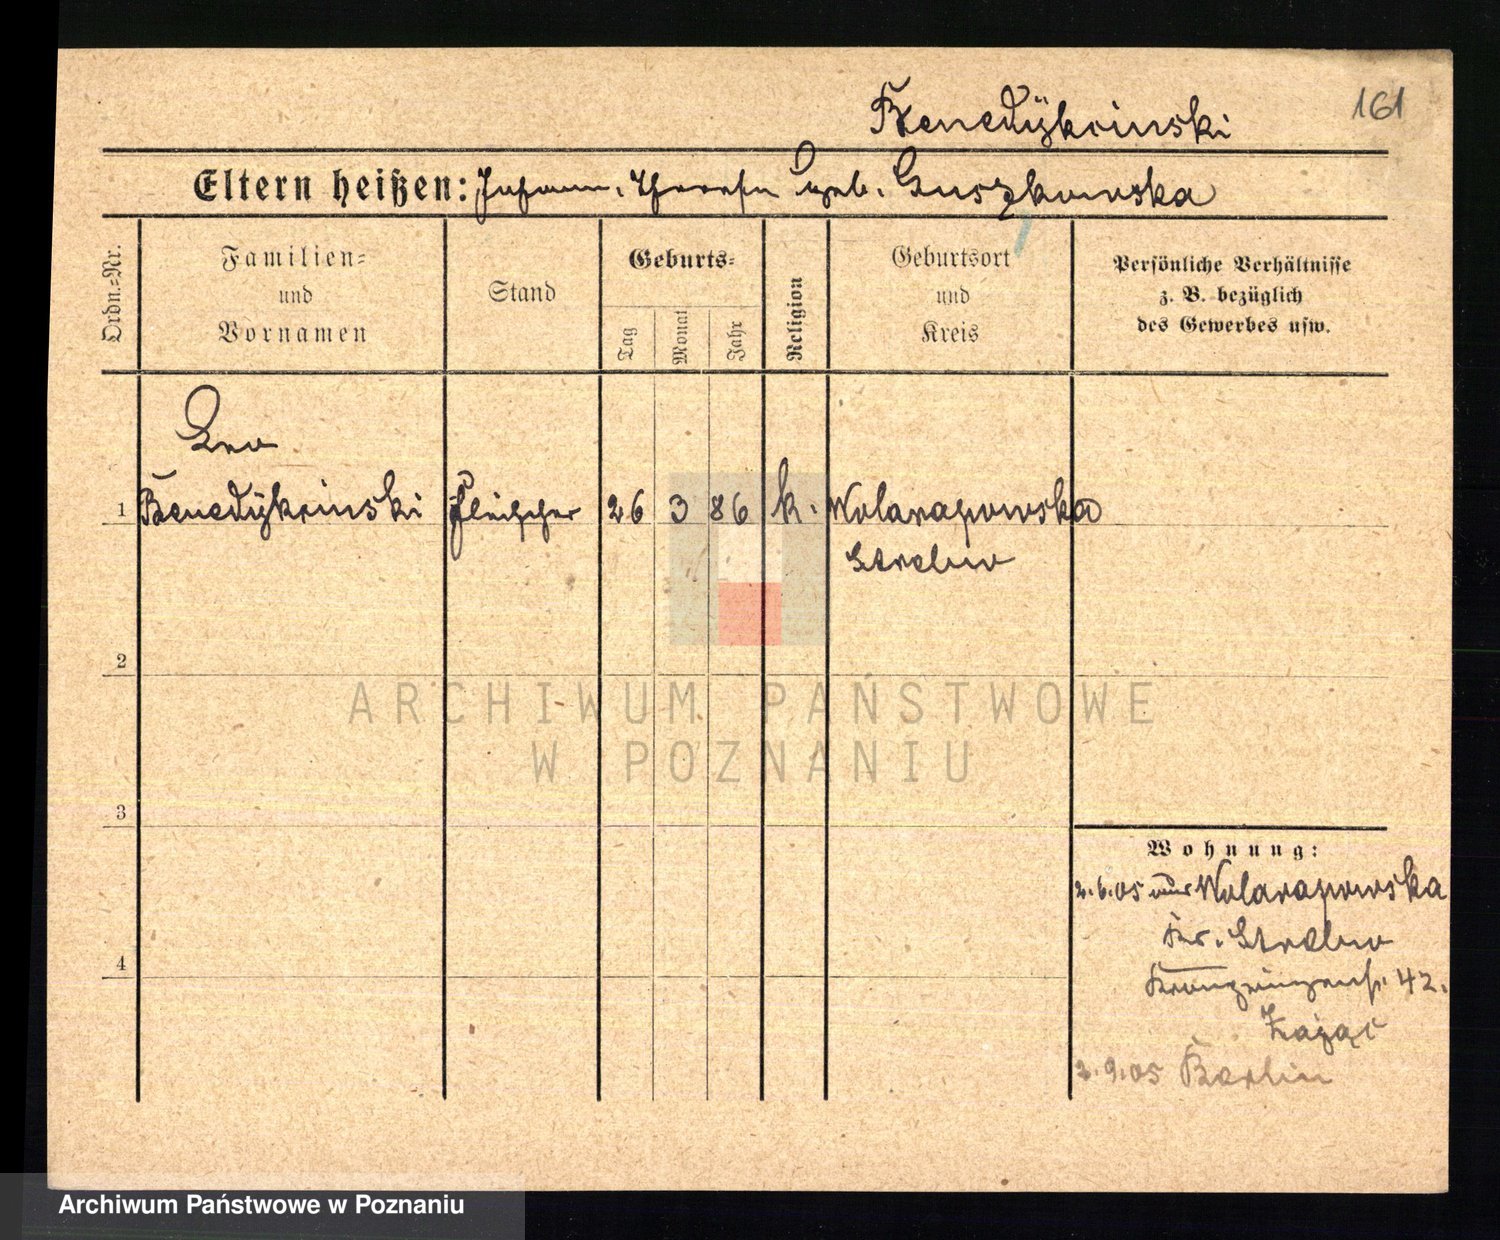 Benedÿkcinski
161
Eltern heißen: Johann, Theresia geb. Guszkowska
Ordn.-Nr.
Familien-
und
Vornamen
Stand
Geburts-
Tag
Monat
Jahr
Religion
Geburtsort
und
Kreis
Persönliche Verhältnisse
z. B. bezüglich
des Gewerbes usw.
Leo
1 Benedÿkcinski Fleischer 26 3 86 k. Wolarapowska
Strelno
2
ARCHIWUM PAŃSTWOWE
W POZNANIU
3
Wohnung:
2.6.05 aus Wolarapowska
Kr. Strelno
Kronprinzenstr. 42.
Zając
4
2.9.05 Berlin
Archiwum Państwowe w Poznaniu